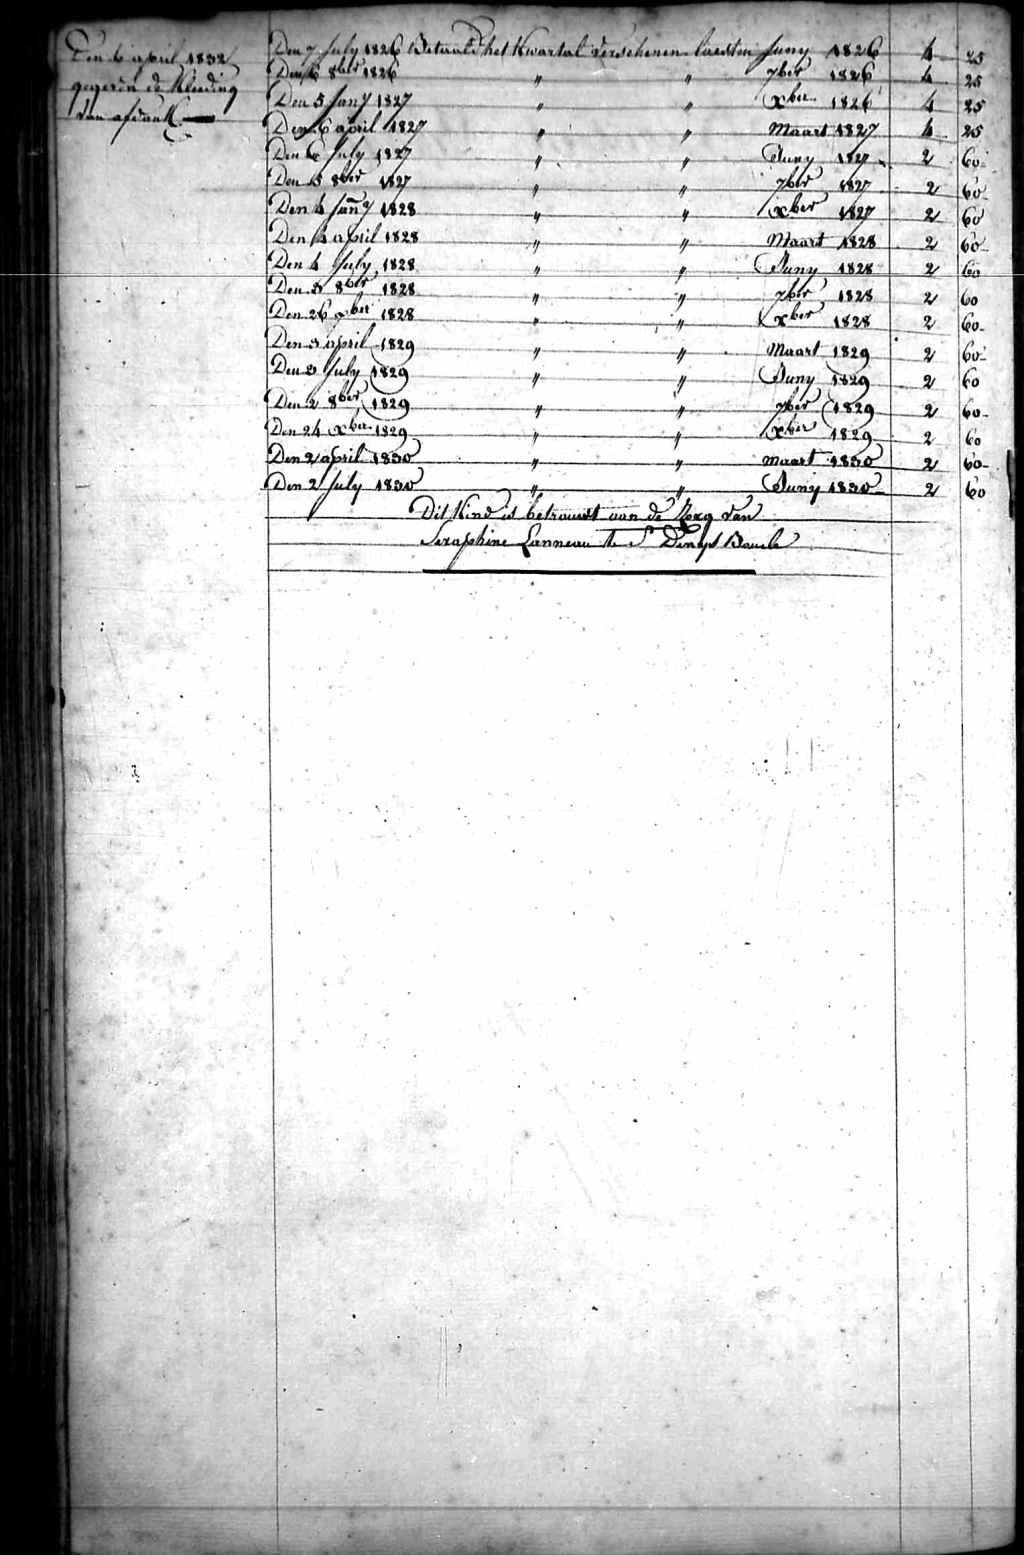 Den 6 april 1832
gegeven de Kleeding
van afdank
Den 7 July 1826 Betaald het Kwartal verschenen laesten Juny 1826 4 25
Den 6 8ber 1826 " " 7ber 1826 4 25
Den 5 Jany 1827 " " xber 1826 4 25
Den 6 april 1827 " " Maart 1827 4 25
Den 6 July 1827 " " Juny 1827 2 60
Den 5 8ber 1827 " " 7ber 1827 2 60
Den 4 Jany 1828 " " xber 1827 2 60
Den 4 april 1828 " " Maart 1828 2 60
Den 4 July 1828 " " Juny 1828 2 60
Den 3 8ber 1828 " " 7ber 1828 2 60
Den 26 xber 1828 " " xber 1828 2 60
Den 3 april 1829 " " Maart 1829 2 60
Den 3 July 1829 " " Juny 1829 2 60
Den 2 8ber 1829 " " 7ber 1829 2 60
Den 24 xber 1829 " " xber 1829 2 60
Den 2 april 1830 " " maart 1830 2 60
Den 2 July 1830 " " Juny 1830 2 60
Dit Kind is betrouwt aan de Zorg van
Seraphine Lanneau te St Denys Boucle